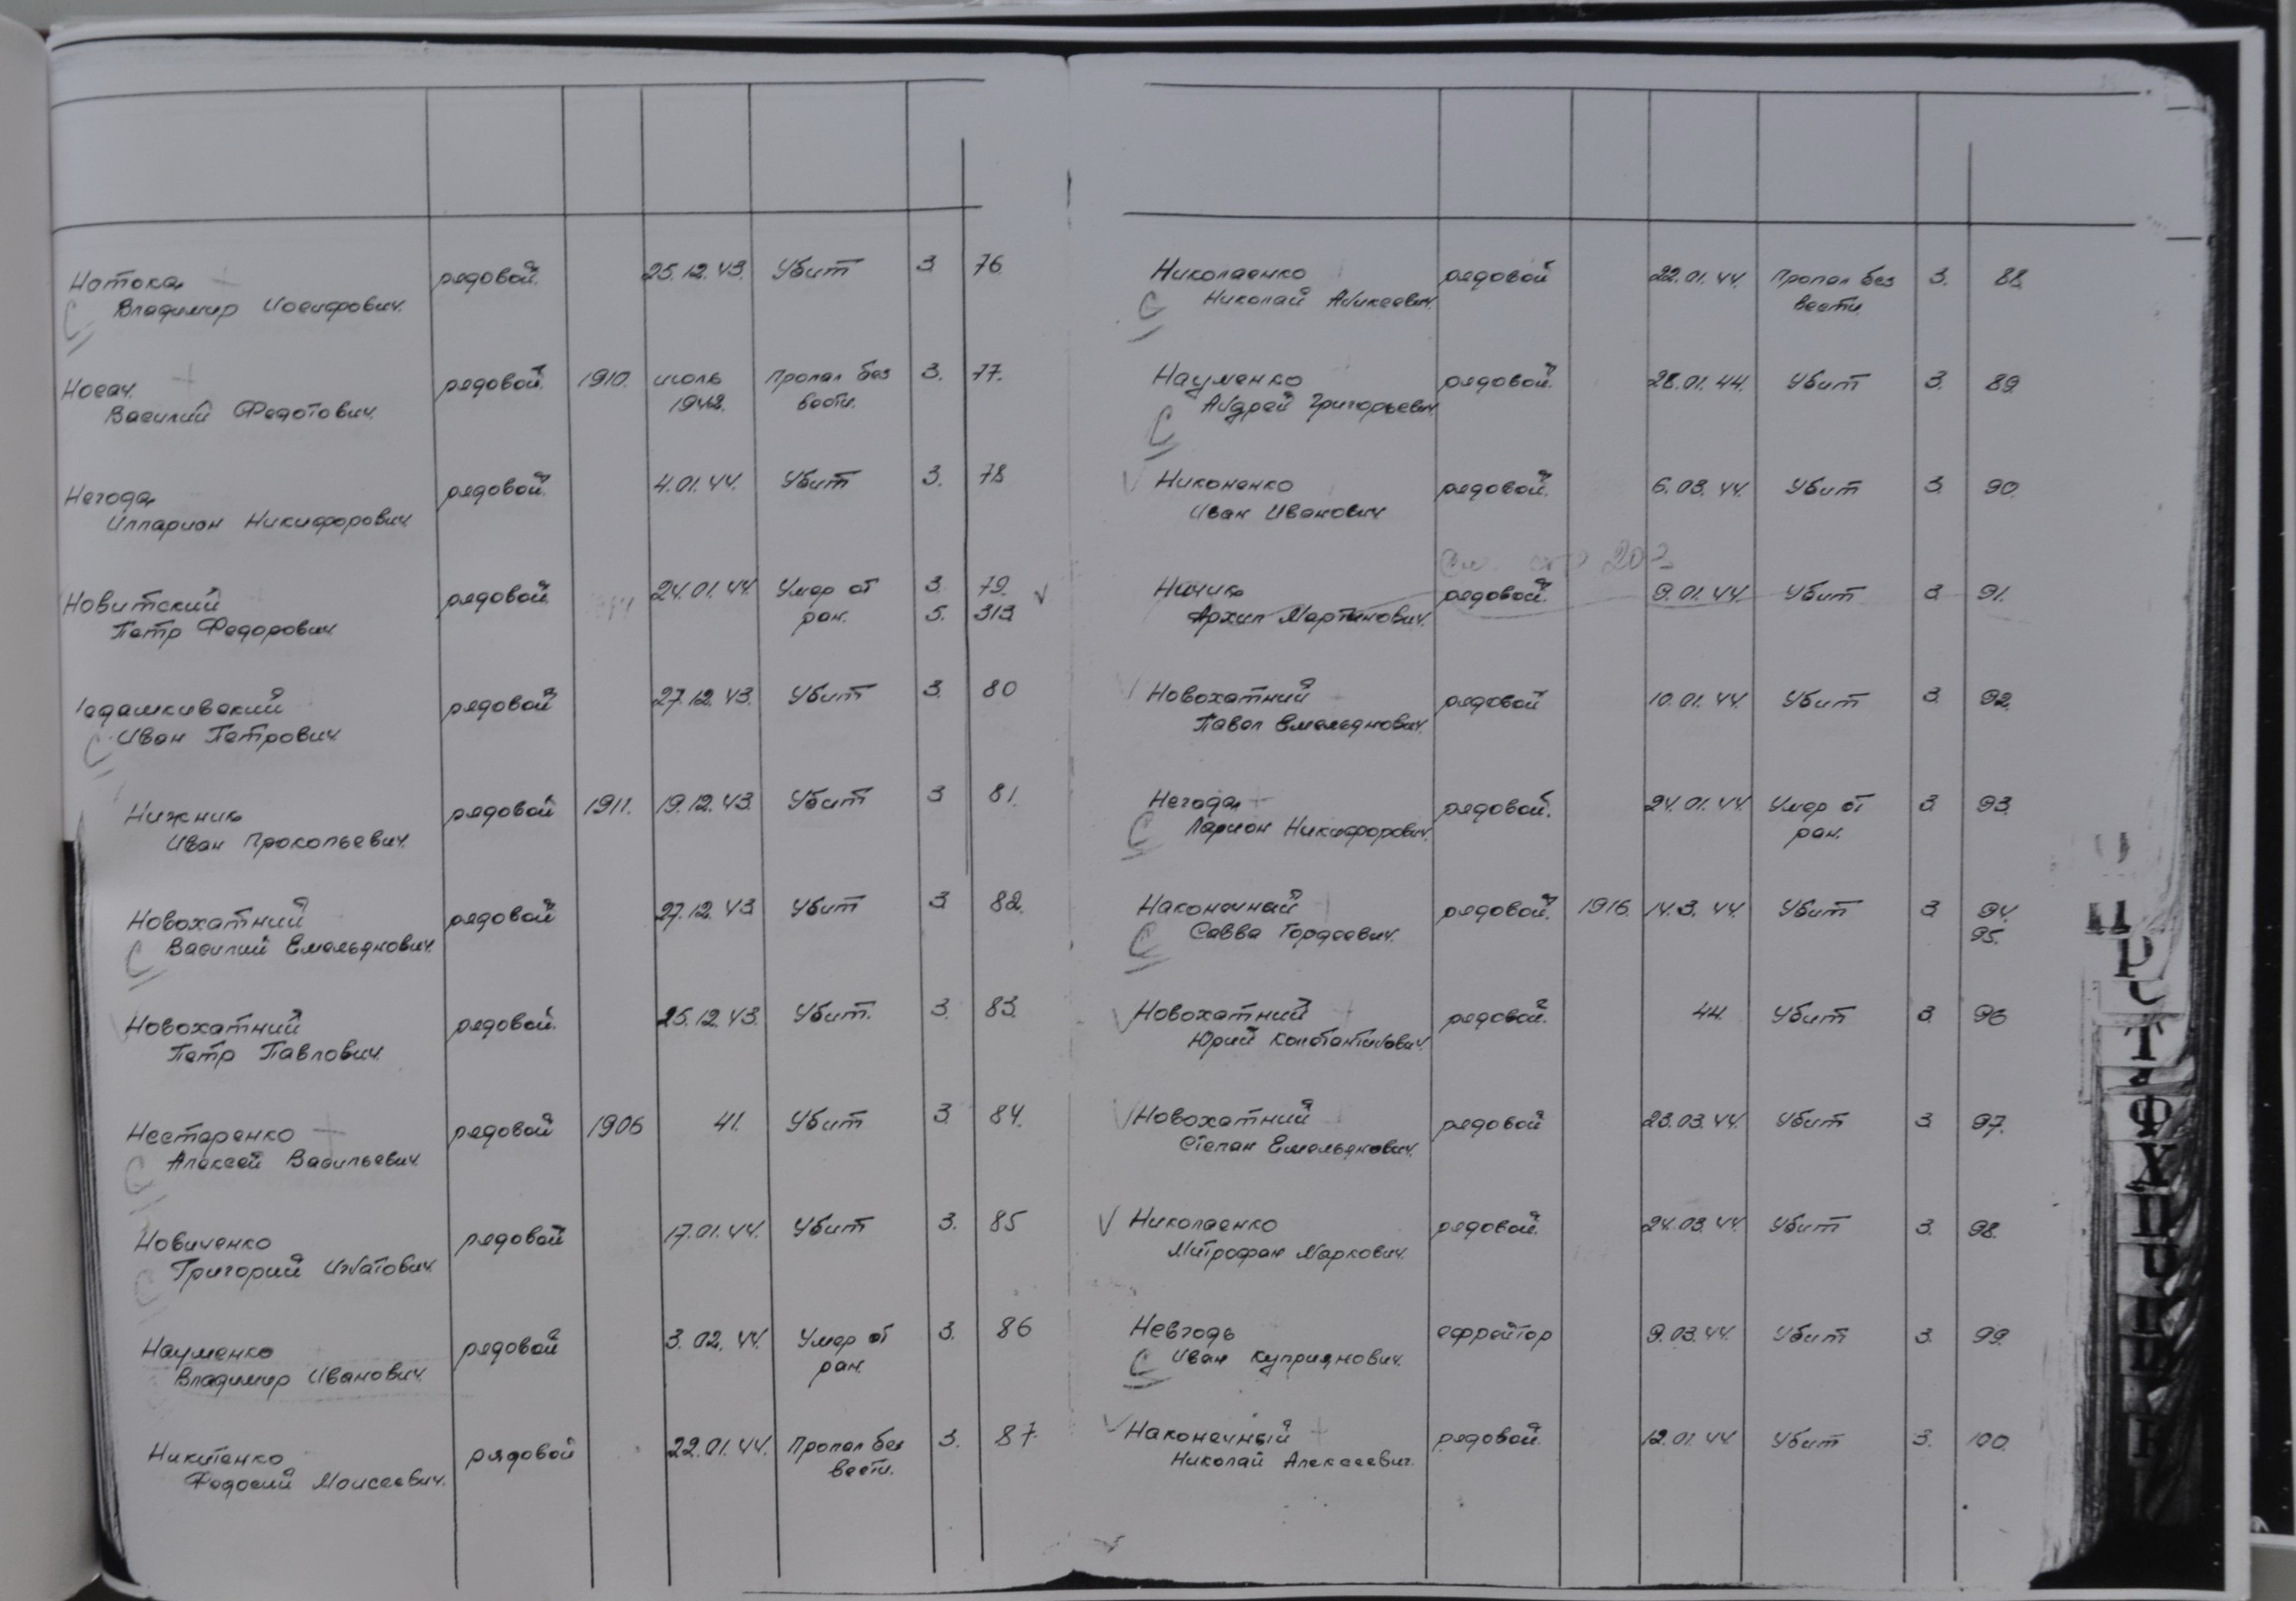 Нотока рядовой. 25.12.43. Убит 3. 76.
С Владимир Иосифович.
Носач. рядовой. 1910. июль Пропал без 3. 77.
Василий Федотович. 1942. вести.
Негода рядовой. 4.01.44. Убит 3. 78
Илларион Никифорович
Новитский рядовой. 24.01.44. Умер от 3. 79. √
Петр Федорович. ран. 5. 313
адашкивский рядовой 27.12.43. Убит 3. 80
С Иван Петрович.
Нижник рядовой 1911. 19.12.43. Убит 3 81.
Иван Прокопьевич.
Новохатний рядовой 27.12.43 Убит 3 82.
С Василий Емельянович.
Новохатний рядовой. 25.12.43. Убит. 3. 83.
Петр Павлович.
Нестеренко рядовой 1906 41. Убит 3 84.
С Алексей Васильевич.
Новиченко рядовой 17.01.44. Убит 3. 85
С Григорий Игнатович.
Науменко рядовой 3.02.44. Умер от 3. 86
Владимир Иванович. ран.
Никитенко рядовой 22.01.44. Пропал без 3. 87.
Федосий Моисеевич. вести.
Николаенко рядовой 22.01.44. Пропал без 3. 88.
С Николай вести.
Науменко рядовой. 28.01.44. Убит 3. 89.
С Андрей Григорьевич.
√ Никоненко рядовой. 6.03.44. Убит 3. 90.
Иван Иванович
См. стр 203
Ничик рядовой. 9.01.44. Убит 3. 91.
Архип Мартинович.
√ Новохатний рядовой 10.01.44. Убит 3. 92.
Павел Емельянович.
Негода рядовой. 24.01.44. Умер от 3. 93.
С Ларион Никифорович. ран.
Наконечный рядовой. 1916. 14.3.44. Убит 3 94.
С Савва Гордеевич. 95.
√ Новохатний рядовой. 44. Убит 3. 96
Юрий Константинович.
√ Новохатний рядовой 23.03.44. Убит 3 97.
Степан Емельянович.
√ Николаенко рядовой. 24.03.44. Убит 3. 98.
Митрофан Маркович.
Невгодь ефрейтор 9.03.44. Убит 3. 99.
С Иван Куприянович.
√ Наконечный рядовой. 12.01.44. Убит 3. 100.
Николай Алексеевич.
П
Р
С
Т
Ф
Х